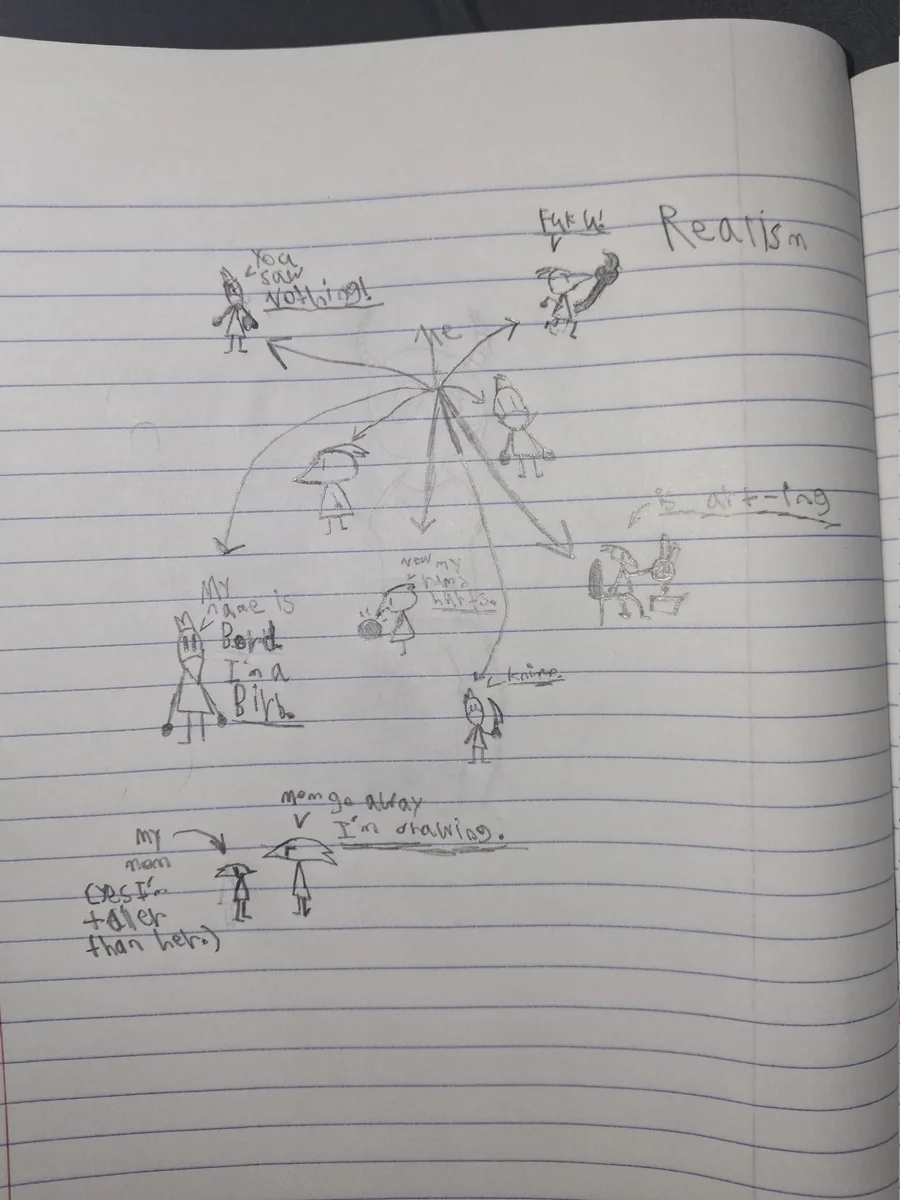 Realism
Fuk u!
You
saw
Nothing!
Me
is art-ing
Now my
hurts.
My
name is
Bord.
I'm a
Birb.
knife.
Mom go away
I'm drawing.
My
mom
(yes I'm
taller
than her.)